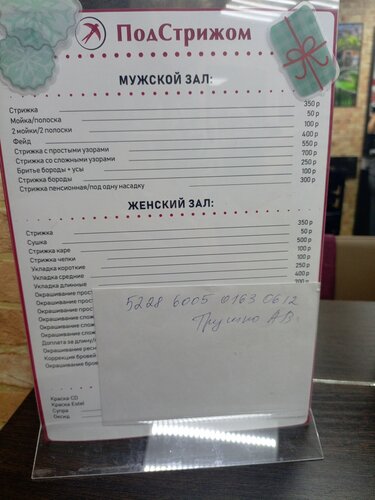 ПодСтрижом
МУЖСКОЙ ЗАЛ:
Стрижка 350 р
Мойка/полоска 50 р
2 мойки/2 полоски 100 р
Фейд 400 р
Стрижка с простыми узорами 550 р
Стрижка со сложными узорами 700 р
Бритье бороды + усы 250 р
Стрижка бороды 100 р
Стрижка пенсионная/под одну насадку 300 р
ЖЕНСКИЙ ЗАЛ:
Стрижка 350 р
Сушка 50 р
Стрижка каре 500 р
Стрижка челки 100 р
Укладка короткие 100 р
Укладка средние 250 р
Укладка длинные 400 р
Окрашивание прос
Окрашивание прос
Окрашивание прос
Окрашивание слож
Окрашивание слож
Окрашивание слож
Доплата за длину/г
Окрашивание ресн
Коррекция бровей
Окрашивание бров
5228 6005 0163 0612
А В
Краска CD
Краска Estel
Супра
Оксид